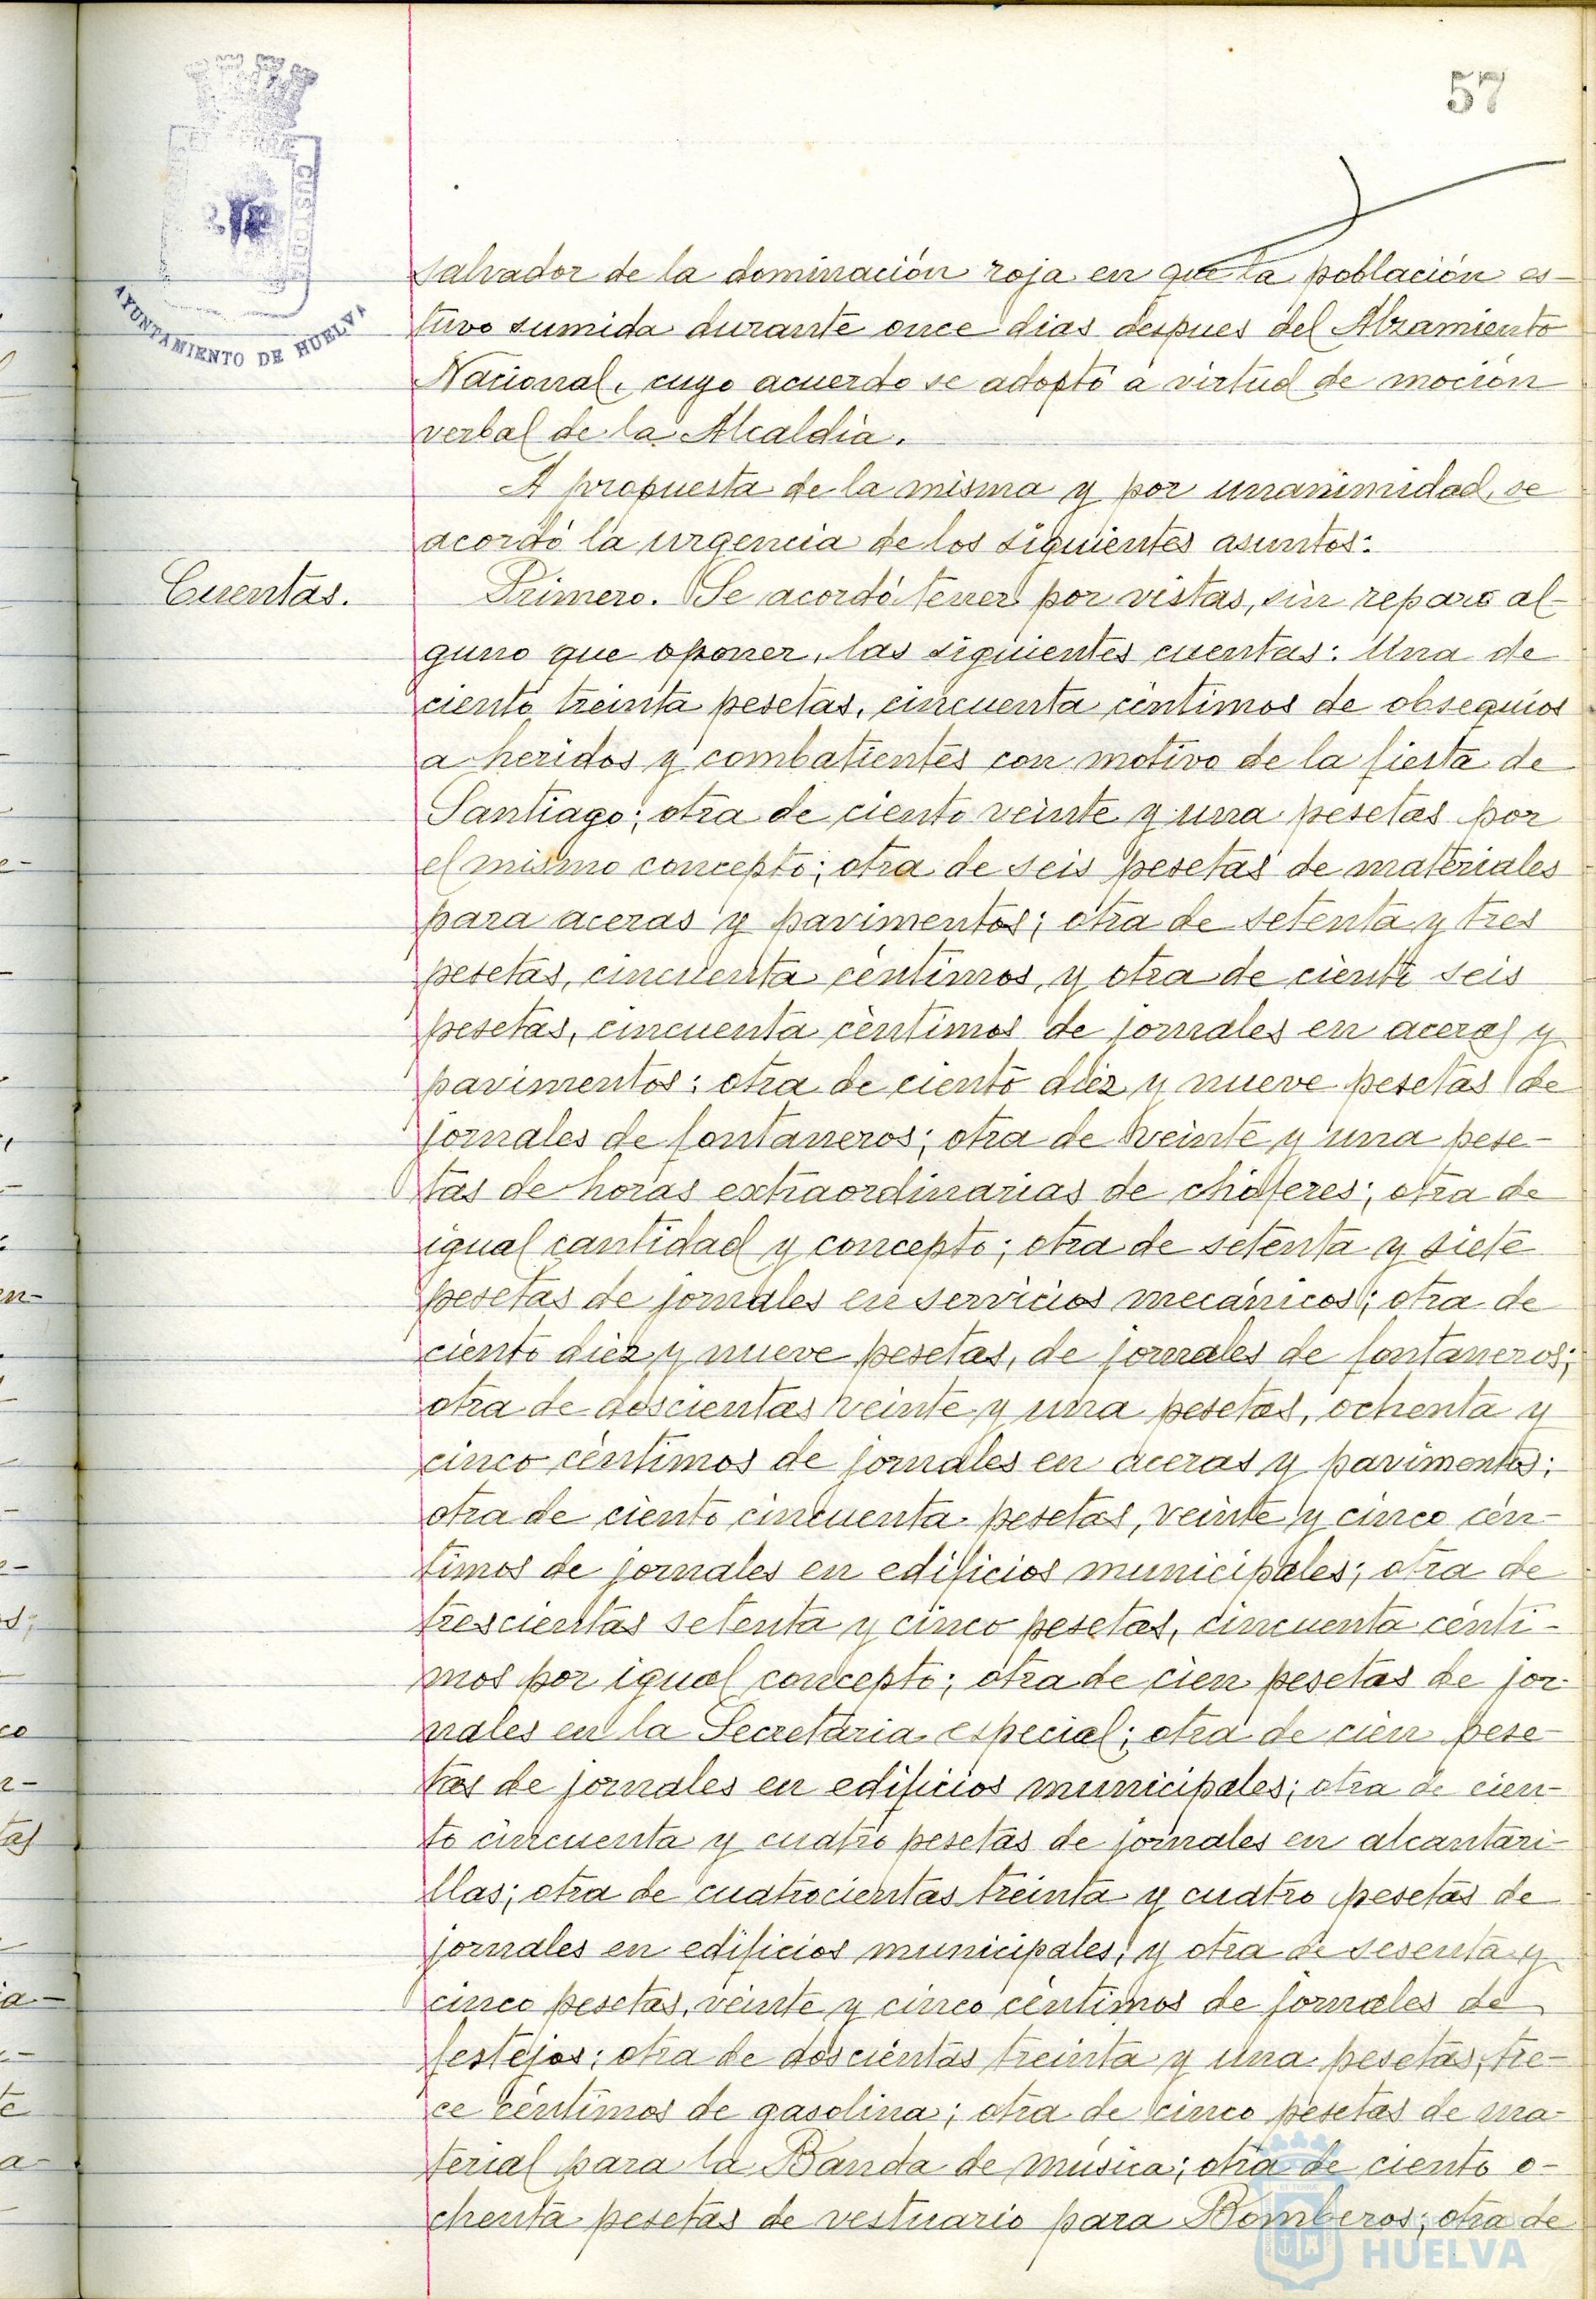 57
CUSTODIA
AYUNTAMIENTO DE HUELVA
salvador de la dominación roja en que la población es-
tuvo sumida durante once dias despues del Alzamiento
Nacional, cuyo acuerdo se adoptó a virtud de moción
verbal de la Alcaldía.
A propuesta de la misma y por unanimidad, se
acordó la urgencia de los siguientes asuntos:
Cuentas.
Primero. Se acordó tener por vistas, sin reparo al-
guno que oponer, las siguientes cuentas: Una de
ciento treinta pesetas, cincuenta céntimos de obsequios
a heridos y combatientes con motivo de la fiesta de
Santiago; otra de ciento veinte y una pesetas por
el mismo concepto; otra de seis pesetas de materiales
para aceras y pavimentos; otra de setenta y tres
pesetas, cincuenta céntimos, y otra de ciento seis
pesetas, cincuenta céntimos de jornales en aceras y
pavimentos; otra de ciento diez y nueve pesetas de
jornales de fontaneros; otra de veinte y una pese-
tas de horas extraordinarias de choferes; otra de
igual cantidad y concepto; otra de setenta y siete
pesetas de jornales en servicios mecánicos; otra de
ciento diez y nueve pesetas, de jornales de fontaneros;
otra de doscientas veinte y una pesetas, ochenta y
cinco céntimos de jornales en aceras y pavimentos;
otra de ciento cincuenta pesetas, veinte y cinco cén-
timos de jornales en edificios municipales; otra de
trescientas setenta y cinco pesetas, cincuenta cénti-
mos por igual concepto; otra de cien pesetas de jor-
nales en la Secretaria especial; otra de cien pese-
tas de jornales en edificios municipales; otra de cien-
to cincuenta y cuatro pesetas de jornales en alcantari-
llas; otra de cuatrocientas treinta y cuatro pesetas de
jornales en edificios municipales; y otra de sesenta y
cinco pesetas, veinte y cinco céntimos de jornales de
festejos; otra de doscientas treinta y una pesetas, tre-
ce céntimos de gasolina; otra de cinco pesetas de ma-
terial para la Banda de música; otra de ciento o-
chenta pesetas de vestuario para Bomberos; otra de
HUELVA